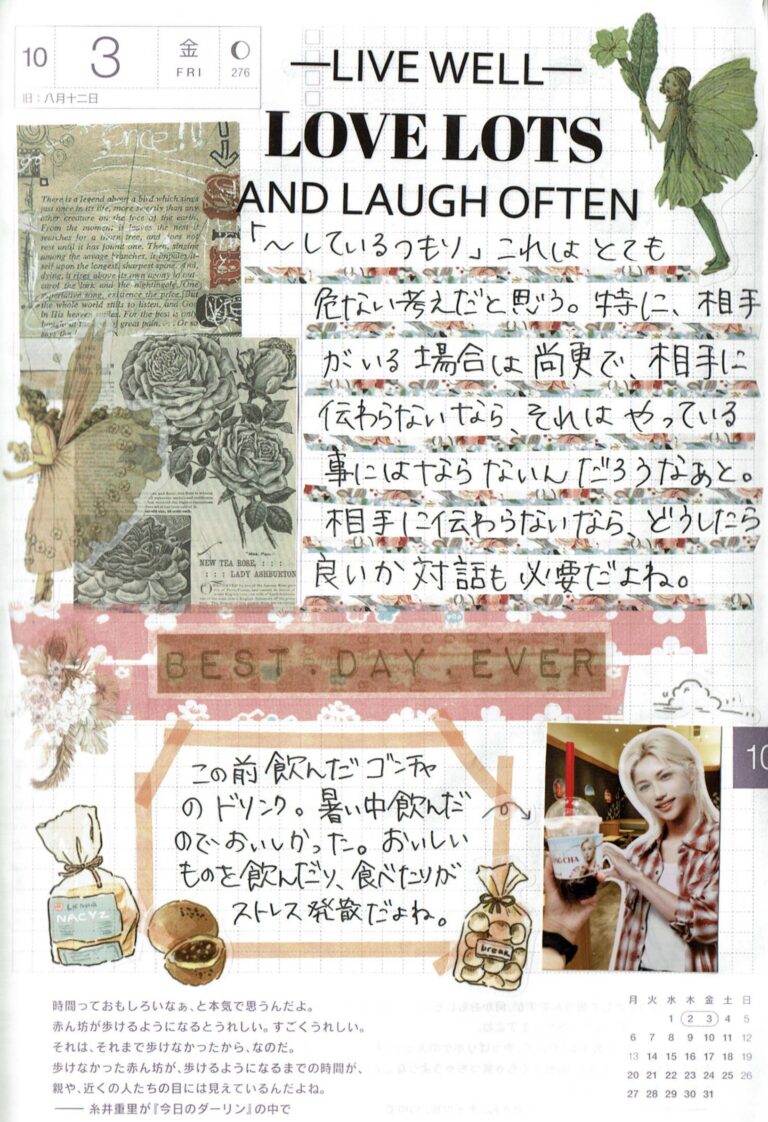 10
3
金
FRI
276
旧：八月十二日
—LIVE WELL—
LOVE LOTS
AND LAUGH OFTEN
There is a legend about a bird which sings
just once in its life, more sweetly than any
other creature on the face of the earth.
From the moment it leaves the nest it
searches for a thorn tree, and does not
rest until it has found one. Then, singing
among the savage branches, it impales it-
self upon the longest, sharpest spine. And,
dying, it rises above its own agony to out-
carol the lark and the nightingale. One
superlative song, existence the price. But
the whole world stills to listen, and God
in His heaven smiles. For the best is only
bought at great pain. ... Or so
「〜しているつもり」これは とても
危ない考えだと思う。特に、相手
がいる場合は尚更で、相手に
伝わらないなら、それは やっている
事にはならないんだろうなあと。
相手に伝わらないなら、どうしたら
良いか 対話も 必要だよね。
NEW TEA ROSE,
LADY ASHBURTON
BEST.DAY.EVER
10
この前飲んだ ゴンチャ
のドリンク。暑い中飲んだ
のでおいしかった。おいしい
ものを飲んだり、食べたりが
ストレス発散だよね。
NACYZ
bread
NGCHA
時間っておもしろいなぁ、と本気で思うんだよ。
赤ん坊が歩けるようになるとうれしい。すごくうれしい。
それは、それまで歩けなかったから、なのだ。
歩けなかった赤ん坊が、歩けるようになるまでの時間が、
親や、近くの人たちの目には見えているんだよね。
―― 糸井重里が『今日のダーリン』の中で
月 火 水 木 金 土 日
1 2 3 4 5
6 7 8 9 10 11 12
13 14 15 16 17 18 19
20 21 22 23 24 25 26
27 28 29 30 31